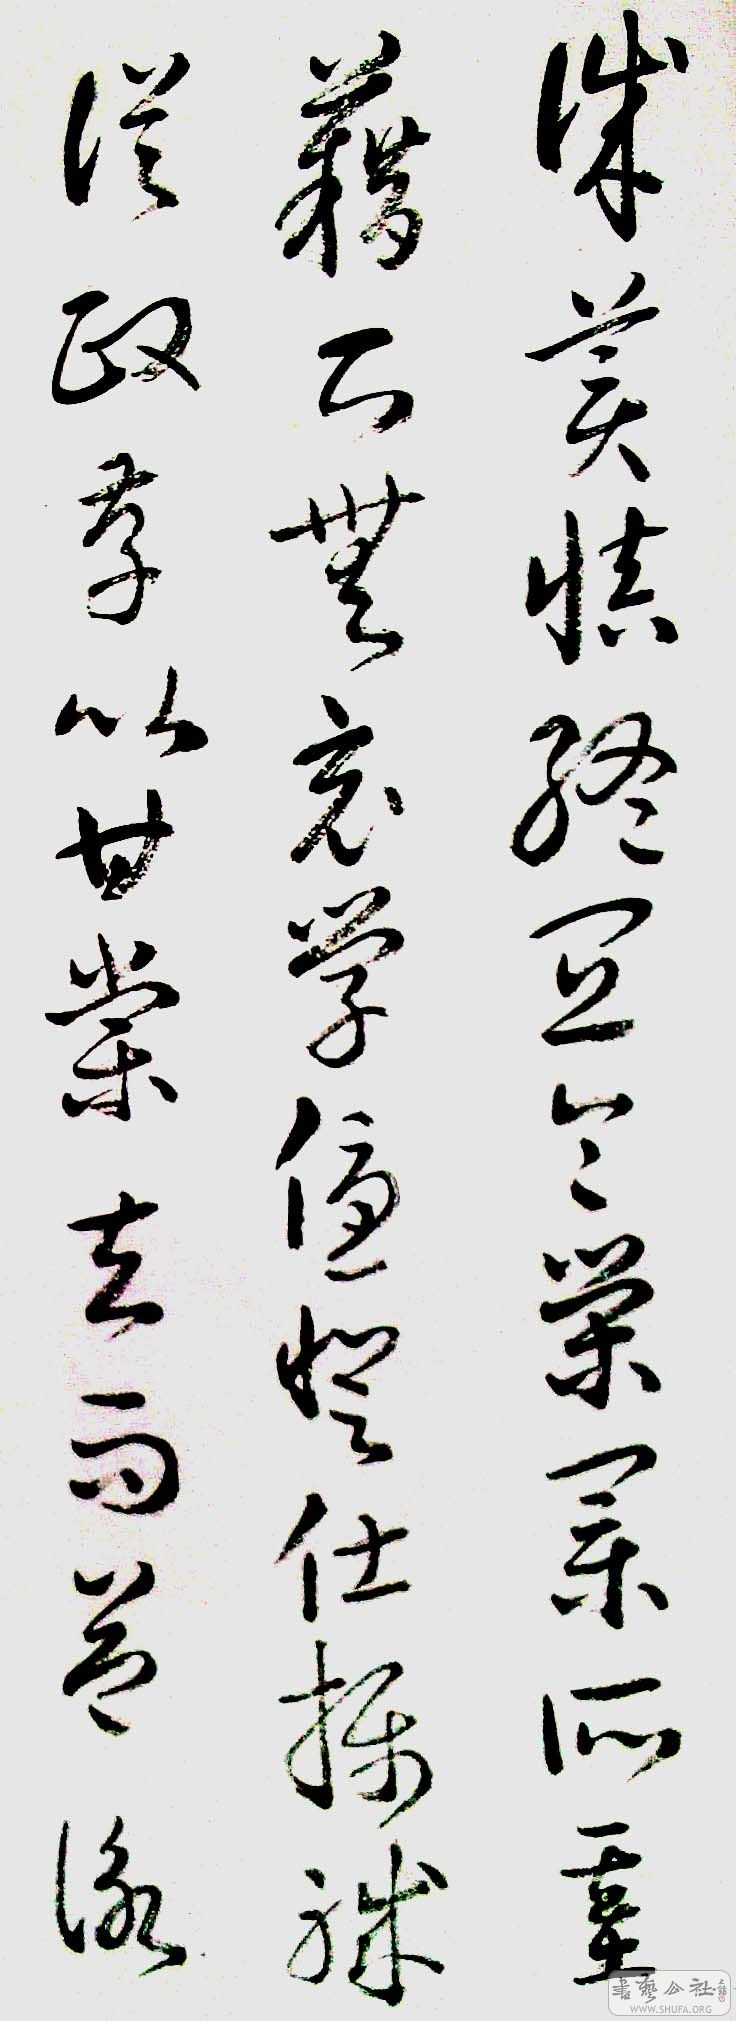 誠美慎終宜令榮業所基
藉甚無竟學優登仕攝職
從政存以甘棠去而益詠
書藝公社
WWW.SHUFA.ORG